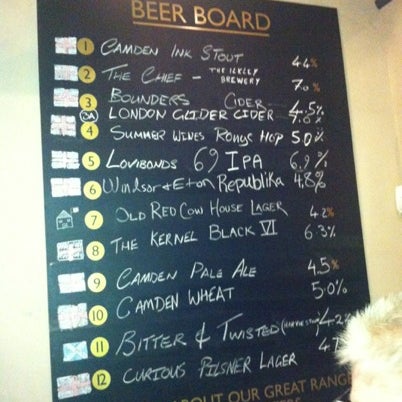 BEER BOARD
1 CAMDEN INK STOUT 4.4%
2 THE CHIEF - THE ILKLEY BREWERY 7.0%
3 BOUNDERS CIDER 4.5%
3A LONDON GLIDER CIDER
4 SUMMER WINES RONUS HOP 5.0%
5 LOVIBONDS 69 IPA 6.9%
6 Windsor & Eton Republika 4.8%
7 OLD RED COW HOUSE LAGER 4.2%
8 THE KERNEL BLACK VI 6.3%
9 CAMDEN PALE ALE 4.5%
10 CAMDEN WHEAT 5.0%
11 BITTER & TWISTED 4.2%
12 CURIOUS PILSNER LAGER 4.7
ABOUT OUR GREAT RANGE